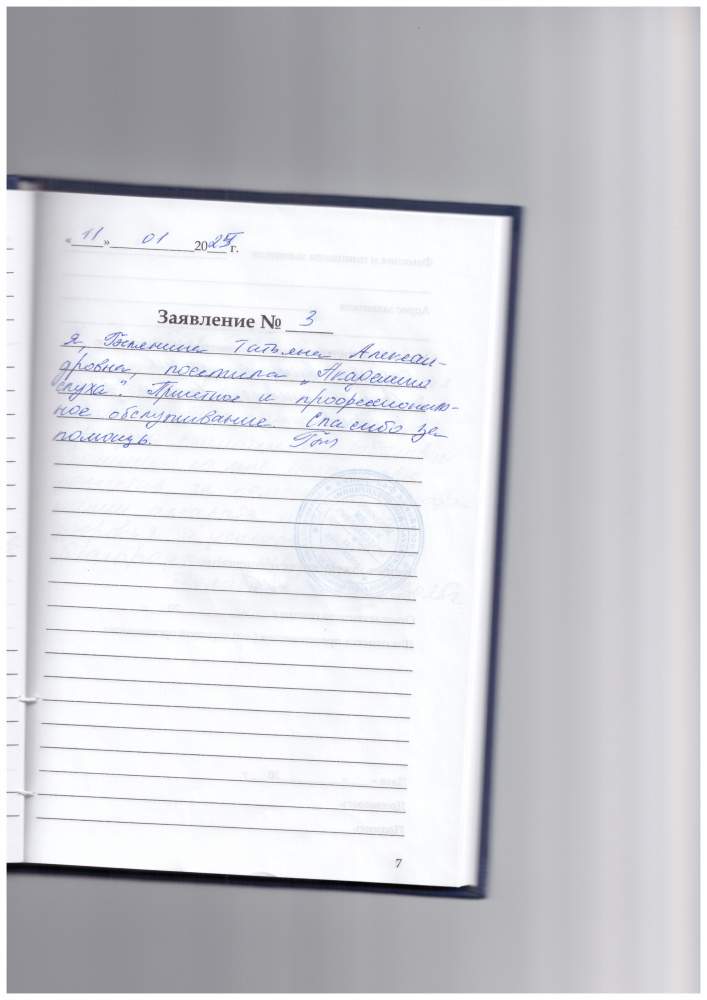 «11» 01 2025 г.
Заявление № 3
Я, Татьяна Алексан-
дровна, посетила „Академия
слуха". Приятное и профессиональ-
ное обслуживание. Спасибо за
помощь.
7